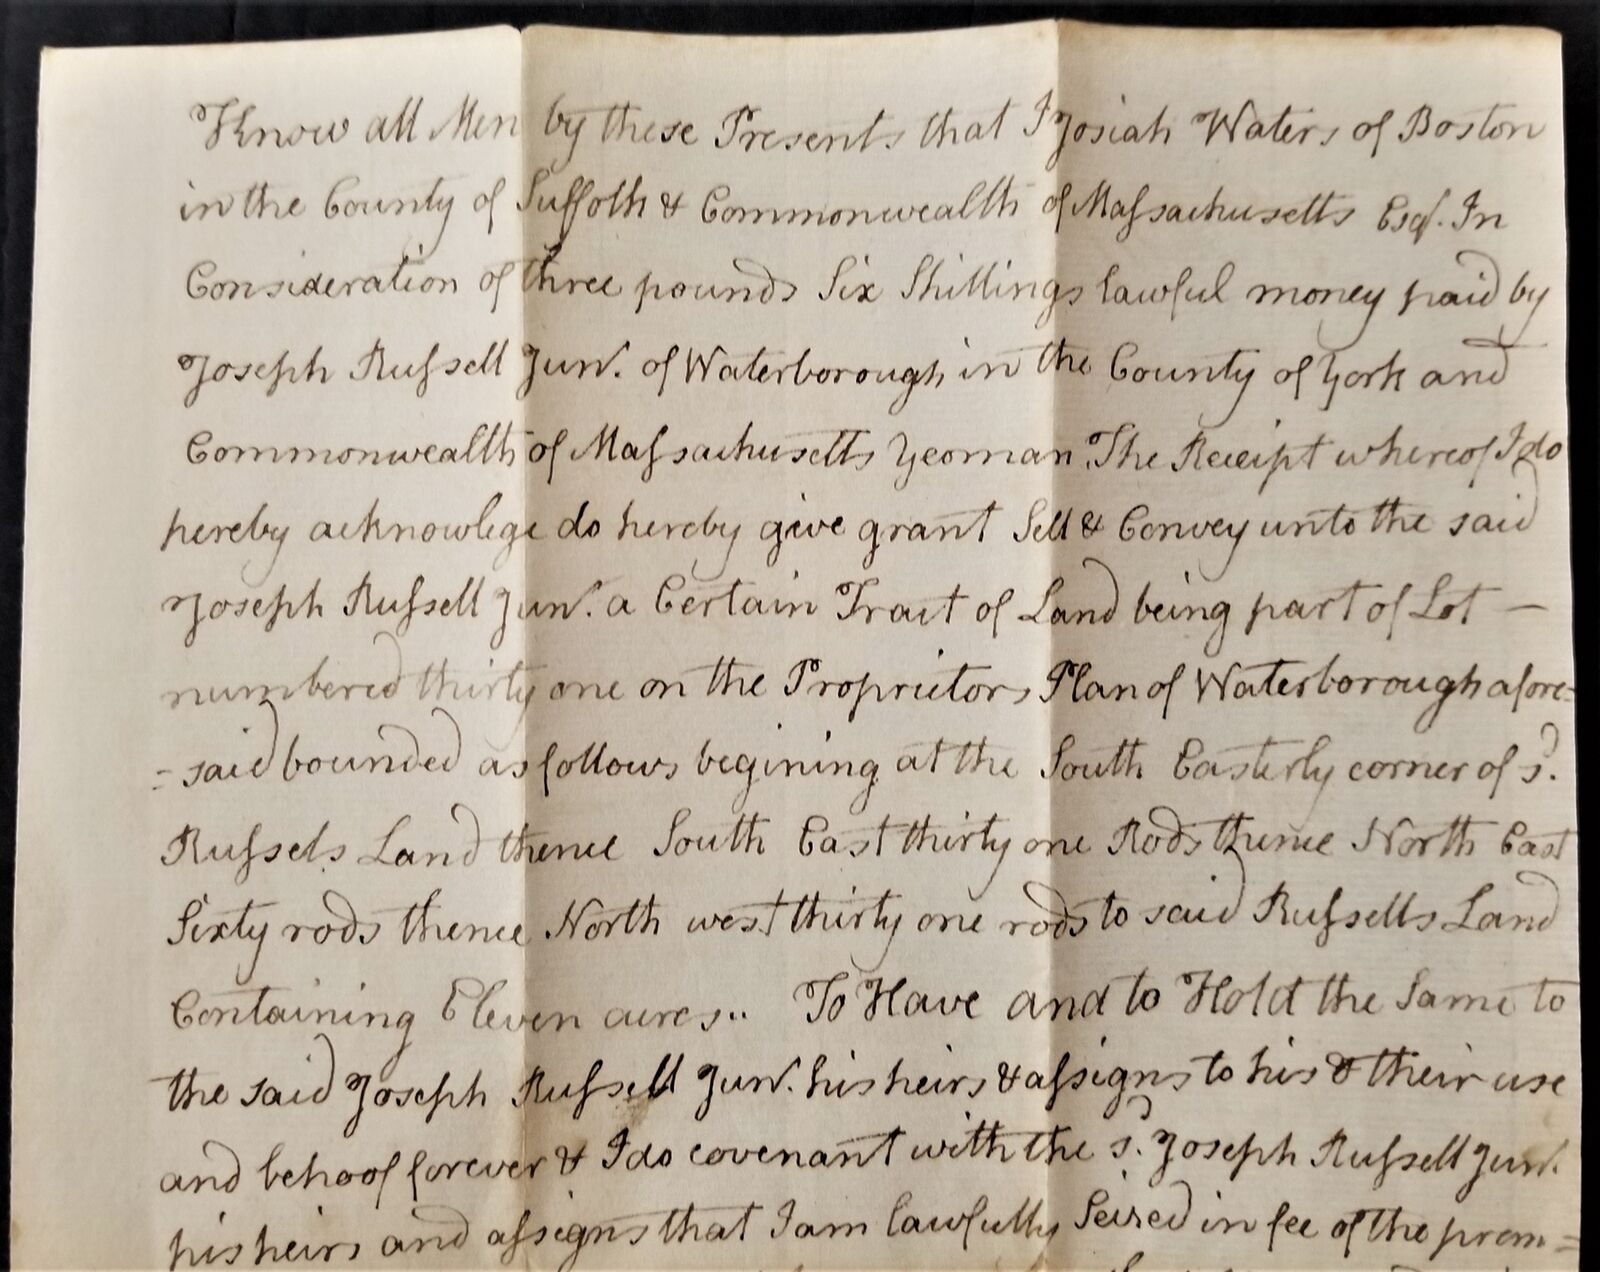 Know all Men by these Presents that I Josiah Waters of Boston
in the County of Suffolk & Commonwealth of Maſsachusetts Esqr. In
Consideration of three pounds Six Shillings lawful money paid by
Joseph Ruſsell Junr. of Waterborough in the County of York and
Commonwealth of Maſsachusetts Yeoman The Receipt whereof I do
hereby acknowlege do hereby give grant Sell & Convey unto the said
Joseph Ruſsell Junr. a Certain Tract of Land being part of Lot —
numbered thirty one on the Proprietors Plan of Waterborough afore=
=said bounded as follows begining at the South Easterly corner of sd.
Ruſsels Land thence South East thirty one Rods thence North East
Sixty rods thence North west thirty one rods to said Ruſsells Land
Containing Eleven acres.. To Have and to Hold the Same to
the said Joseph Ruſsell Junr. his heirs & aſsigns to his & their use
and behoof forever & I do covenant with the sd. Joseph Ruſsell Junr.
his heirs and aſsigns that I am lawfully Seized in fee of the prem=